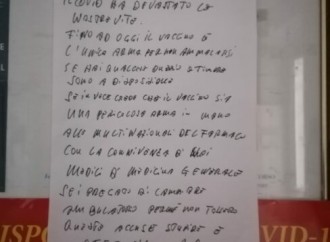 IL COVID HA DEVASTATO LE
NOSTRE VITE.
FINO AD OGGI IL VACCINO È
L'UNICA ARMA PER NON AMMALARSI
SE HAI QUALCHE DUBBIO
SONO A DISPOSIZIONE
SE INVECE CREDI CHE IL VACCINO SIA
UNA PERICOLOSA ARMA IN MANO
ALLE MULTINAZIONALI DEL FARMACO
CON LA CONNIVENZA DI NOI
MEDICI DI MEDICINA GENERALE
SEI PREGATO DI CAMBIARE
AMBULATORIO PERCHÉ NON TOLLERO
QUESTE ACCUSE STUPIDE E
ISPO
VID-1